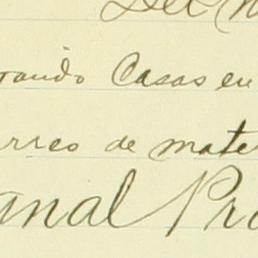 Del M
rando Casas en
rreo de mate
anal Pri